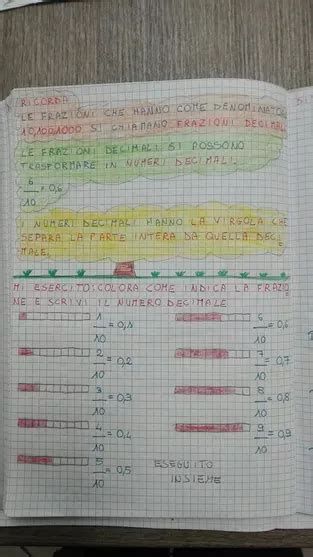 RICORDA
LE FRAZIONI CHE HANNO COME DENOMINATOR
10,100,1000 SI CHIAMANO FRAZIONI DECIMAL
LE FRAZIONI DECIMALI SI POSSONO
TRASFORMARE IN NUMERI DECIMALI.
6/10 = 0,6
I NUMERI DECIMALI HANNO LA VIRGOLA CHE
SEPARA LA PARTE INTERA DA QUELLA DECI
MALE.
MI ESERCITO: COLORA COME INDICA LA FRAZIO
NE E SCRIVI IL NUMERO DECIMALE
1/10 = 0,1
6/10 = 0,6
2/10 = 0,2
7/10 = 0,7
3/10 = 0,3
8/10 = 0,8
4/10 = 0,4
9/10 = 0,9
5/10 = 0,5
ESEGUITO
INSIEME